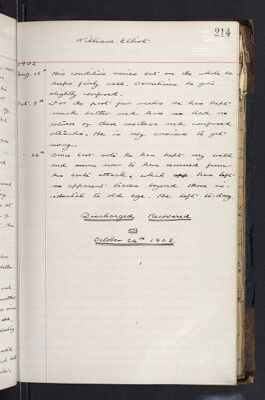 214
William Elliot
1902
Aug. 15th His condition varies but on the whole he
keeps fairly well. Sometimes he gets
slightly confused.
Oct. 9th For the past few weeks he has kept
much better and has had no
return of their restless and confused
attacks. He is very anxious to get
away.
" 24th Since last note he has kept very well
and seems now to have recovered from
his acute attack, which has left
no apparent traces beyond those in-
cidental to old age. He left to-day.
Discharged Recovered
on
October 24th 1902.